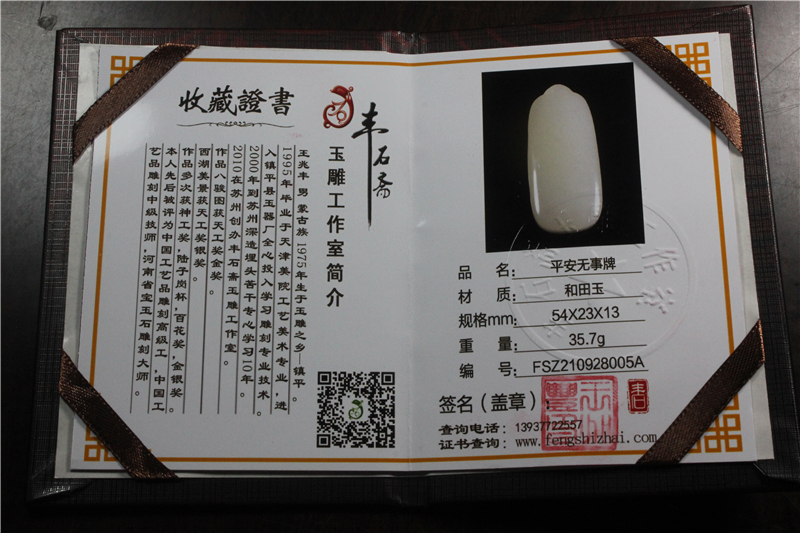 收藏證書
丰石斋
玉雕工作室简介
王兆丰 男 蒙古族 1975年生于玉雕之乡—镇平。
1995年毕业于天津美院工艺美术专业,进
入镇平县玉器厂全心投入学习雕刻专业技术。
2000年到苏州深造埋头苦干专心学习10年。
2010在苏州创办丰石斋玉雕工作室。
作品八骏图获天工奖金奖。
西湖美景获天工奖银奖。
作品多次获神工奖,陆子岗杯,百花奖,金银奖。
本人先后被评为中国工艺品雕刻高级工,中国工
艺品雕刻中级技师,河南省宝玉石雕刻大师。
品 名: 平安无事牌
材 质: 和田玉
规格mm: 54X23X13
重 量: 35.7g
编 号: FSZ210928005A
签名(盖章):
查询电话: 13937722557
证书查询: www.fengshizhai.com